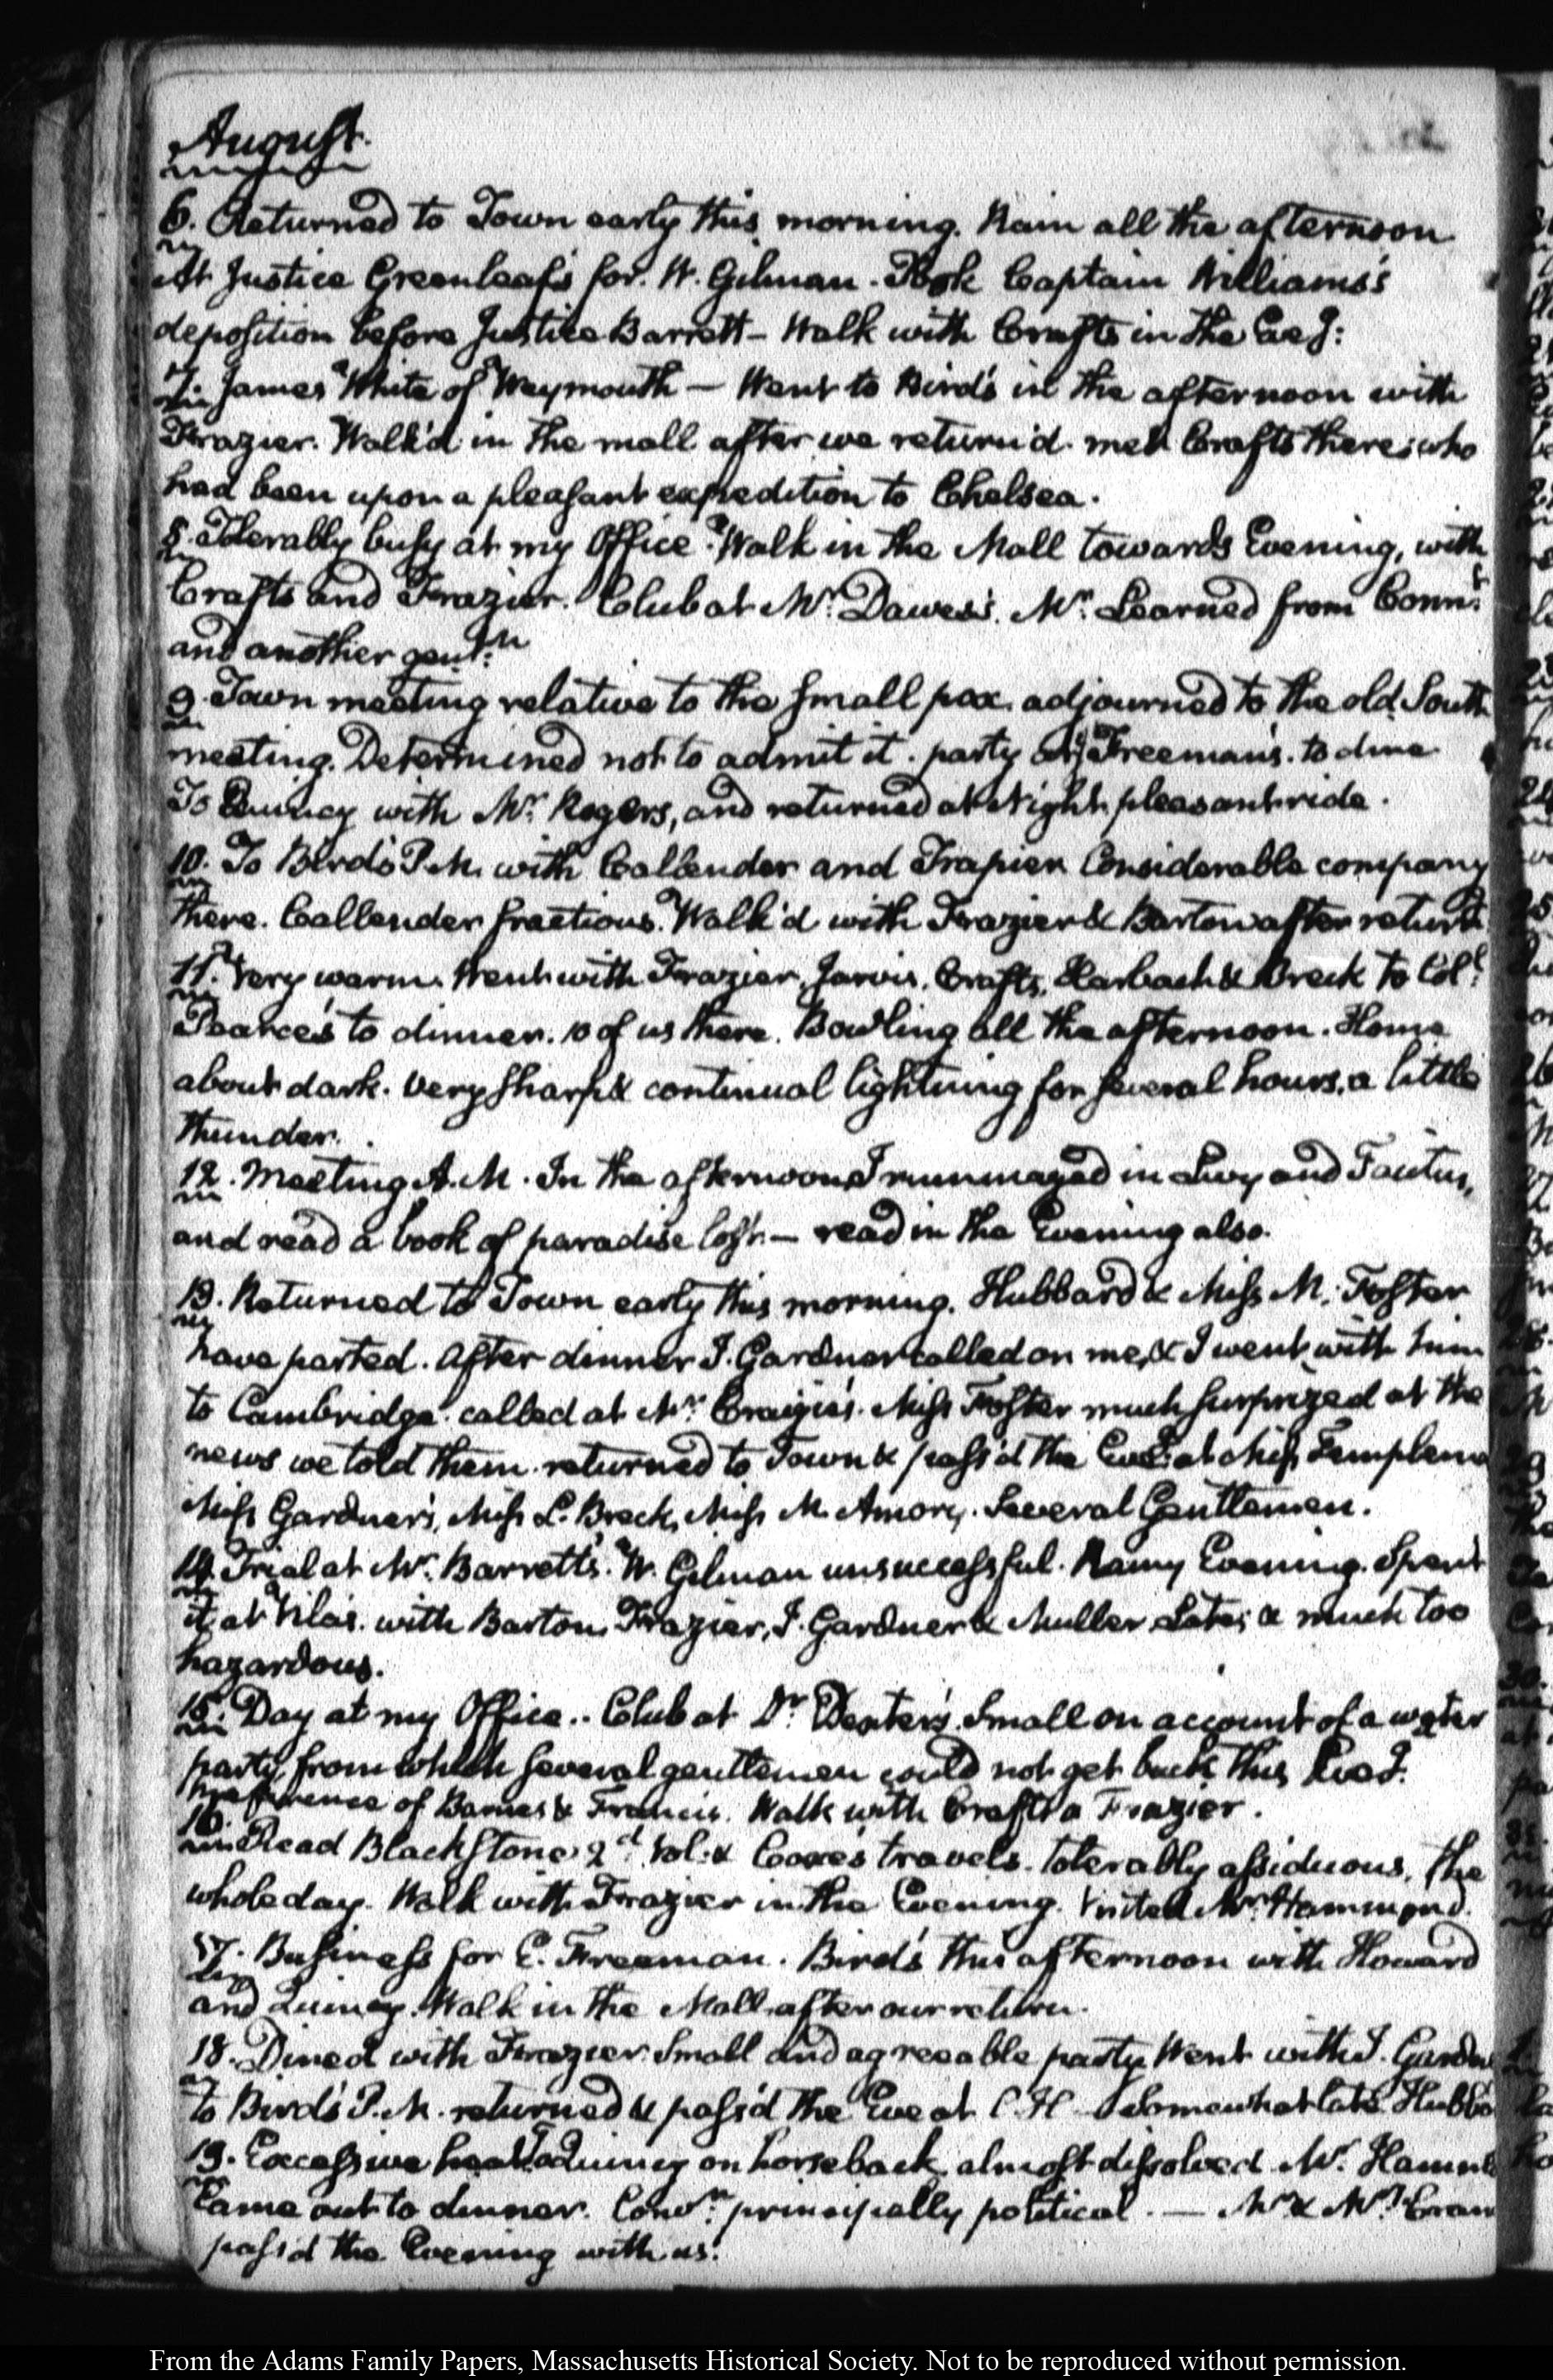 August.
6. Returned to Town early this morning. Rain all the afternoon
At Justice Greenleaf's for W. Gilman. Took Captain Williams's
deposition before Justice Barrett — Walk with Crafts in the Eveg:
7. James White of Weymouth — Went to Bird's in the afternoon with
Frazier. Walk'd in the mall after we return'd. met Crafts there; who
had been upon a pleasant expedition to Chelsea.
8. Tolerably busy at my Office. Walk in the Mall towards Evening, with
Crafts and Frazier. Club at Mr. Dawes's. Mr. Learned from Connt:
and another gent:n
9. Town meeting relative to the small pox, adjourned to the old South
meeting. Determined not to admit it. party at Freeman's. to dine
To Quincy with Mr. Rogers, and returned at Night. pleasant ride.
10. To Bird's P.M. with Callender and Frazier Considerable company
there. Callender fractious. Walk'd with Frazier & Barton after return
11. Very warm. Went with Frazier, Jarvis, Crafts, Harbach & Breck to Coll:
Pearce's to dinner. 10 of us there. Bowling all the afternoon. Home
about dark. very sharp & continual lightning for several hours, a little
thunder.
12. Meeting A.M. In the afternoon I rummaged in Livy and Tacitus,
and read a book of paradise lost. — read in the Evening also.
13. Returned to Town early this morning. Hubbard & Miss M. Foster
have parted. After dinner J. Gardner called on me, & I went with him
to Cambridge. called at Mr. Craigie's. Miss Foster much surprized at the
news we told them. returned to Town & pass'd the Eveg: at Miss
Miss Gardner's, Miss L. Breck, Miss M. Amory. Several Gentlemen.
14. Trial at Mr. Barrett's. W. Gilman unsuccessful. Rainy Evening. Spent
it at Vila's. with Barton, Frazier, J. Gardner & Muller Late; & much too
hazardous.
15. Day at my Office.. Club at Dr. Dexter's. Small on account of a water
party, from which several gentlemen could not get back this Eveg.
of Barnes & Francis. Walk with Crafts & Frazier.
16. Read Blackstone 2d. vol: & Coxe's travels. tolerably assiduous, the
whole day. Walk with Frazier in the Evening. Visited Mr. Hammond.
17. Business for E. Freeman. Bird's this afternoon with Howard
and Quincy. Walk in the Mall after our return.
18. Dined with Frazier. Small and agreeable party Went with J. Gardne
to Bird's P.M. returned & pass'd the Eve at C.H. Somewhat late. Hubba
19. Excessive heat. To Quincy on horseback, almost dissolved. Mr.
Came out to dinner. Conv.n: principally political. — Mr. & Mrs. Cran
pass'd the Evening with us.
From the Adams Family Papers, Massachusetts Historical Society. Not to be reproduced without permission.